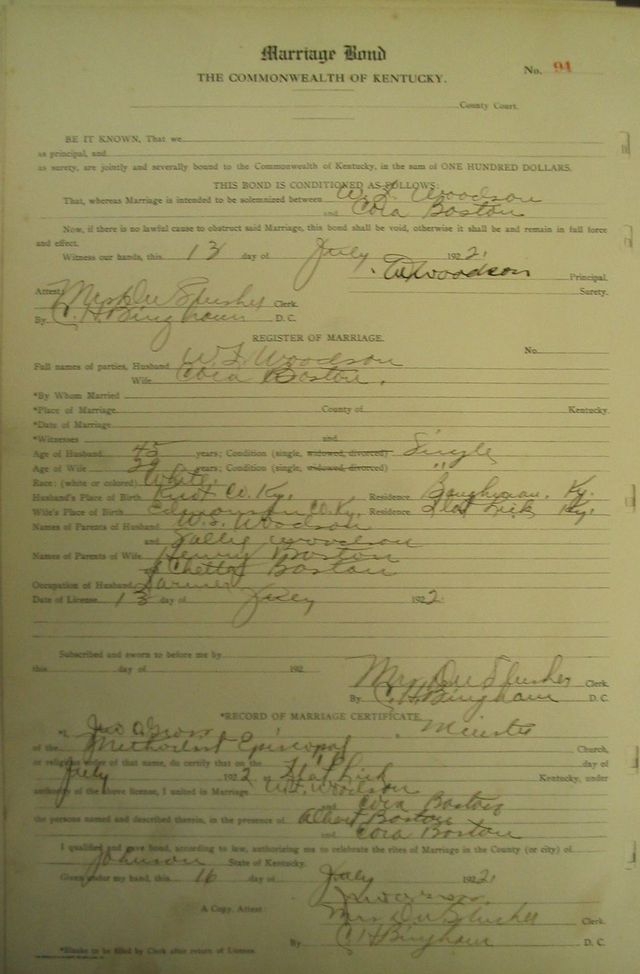 Marriage Bond
THE COMMONWEALTH OF KENTUCKY.
No. 91
County Court.
BE IT KNOWN, That we
as principal, and
as surety, are jointly and severally bound to the Commonwealth of Kentucky, in the sum of ONE HUNDRED DOLLARS.
THIS BOND IS CONDITIONED AS FOLLOWS:
That, whereas Marriage is intended to be solemnized between W. L. Woodson
and Cora Boston
Now, if there is no lawful cause to obstruct said Marriage, this bond shall be void, otherwise it shall be and remain in full force
and effect.
Witness our hands, this 13 day of July 1922
Woodson Principal.
Attest: Surety.
Mrs Du Slusher Clerk.
By C. H. Bingham D. C.
REGISTER OF MARRIAGE.
No.
Full names of parties, Husband W. L. Woodson
Wife Cora Boston.
*By Whom Married
*Place of Marriage County of Kentucky.
*Date of Marriage
*Witnesses and
Age of Husband 45 years; Condition (single, widowed, divorced) Single
Age of Wife 39 years; Condition (single, widowed, divorced) "
Race: (white or colored) White.
Husband's Place of Birth Knox Co. Ky. Residence Ky.
Wife's Place of Birth Edmonson Co. Ky. Residence Flat Lick Ky.
Names of Parents of Husband W. S. Woodson
and Sallie Woodson
Names of Parents of Wife Henry Boston
Boston
Occupation of Husband Farmer
Date of License 13 day of July 1922
Subscribed and sworn to before me by
this day of 192
Mrs Du Slusher Clerk.
By C. H. Bingham D. C.
*RECORD OF MARRIAGE CERTIFICATE.
*I, Jno Gross, Minister
of the Methodist Episcopal Church,
or religious order of that name, do certify that on the day of
July 1922 at Flat Lick Kentucky, under
authority of the above license, I united in Marriage W. L. Woodson
and Cora Boston
the persons named and described therein, in the presence of Albert Boston
and Cora Boston
I qualified and gave bond, according to law, authorizing me to celebrate the rites of Marriage in the County (or city) of
Johnson State of Kentucky.
Given under my hand, this 16 day of July 1922
A Copy. Attest: Mrs Du Slusher Clerk.
By C. H. Bingham D. C.
*Blanks to be filled by Clerk after return of License